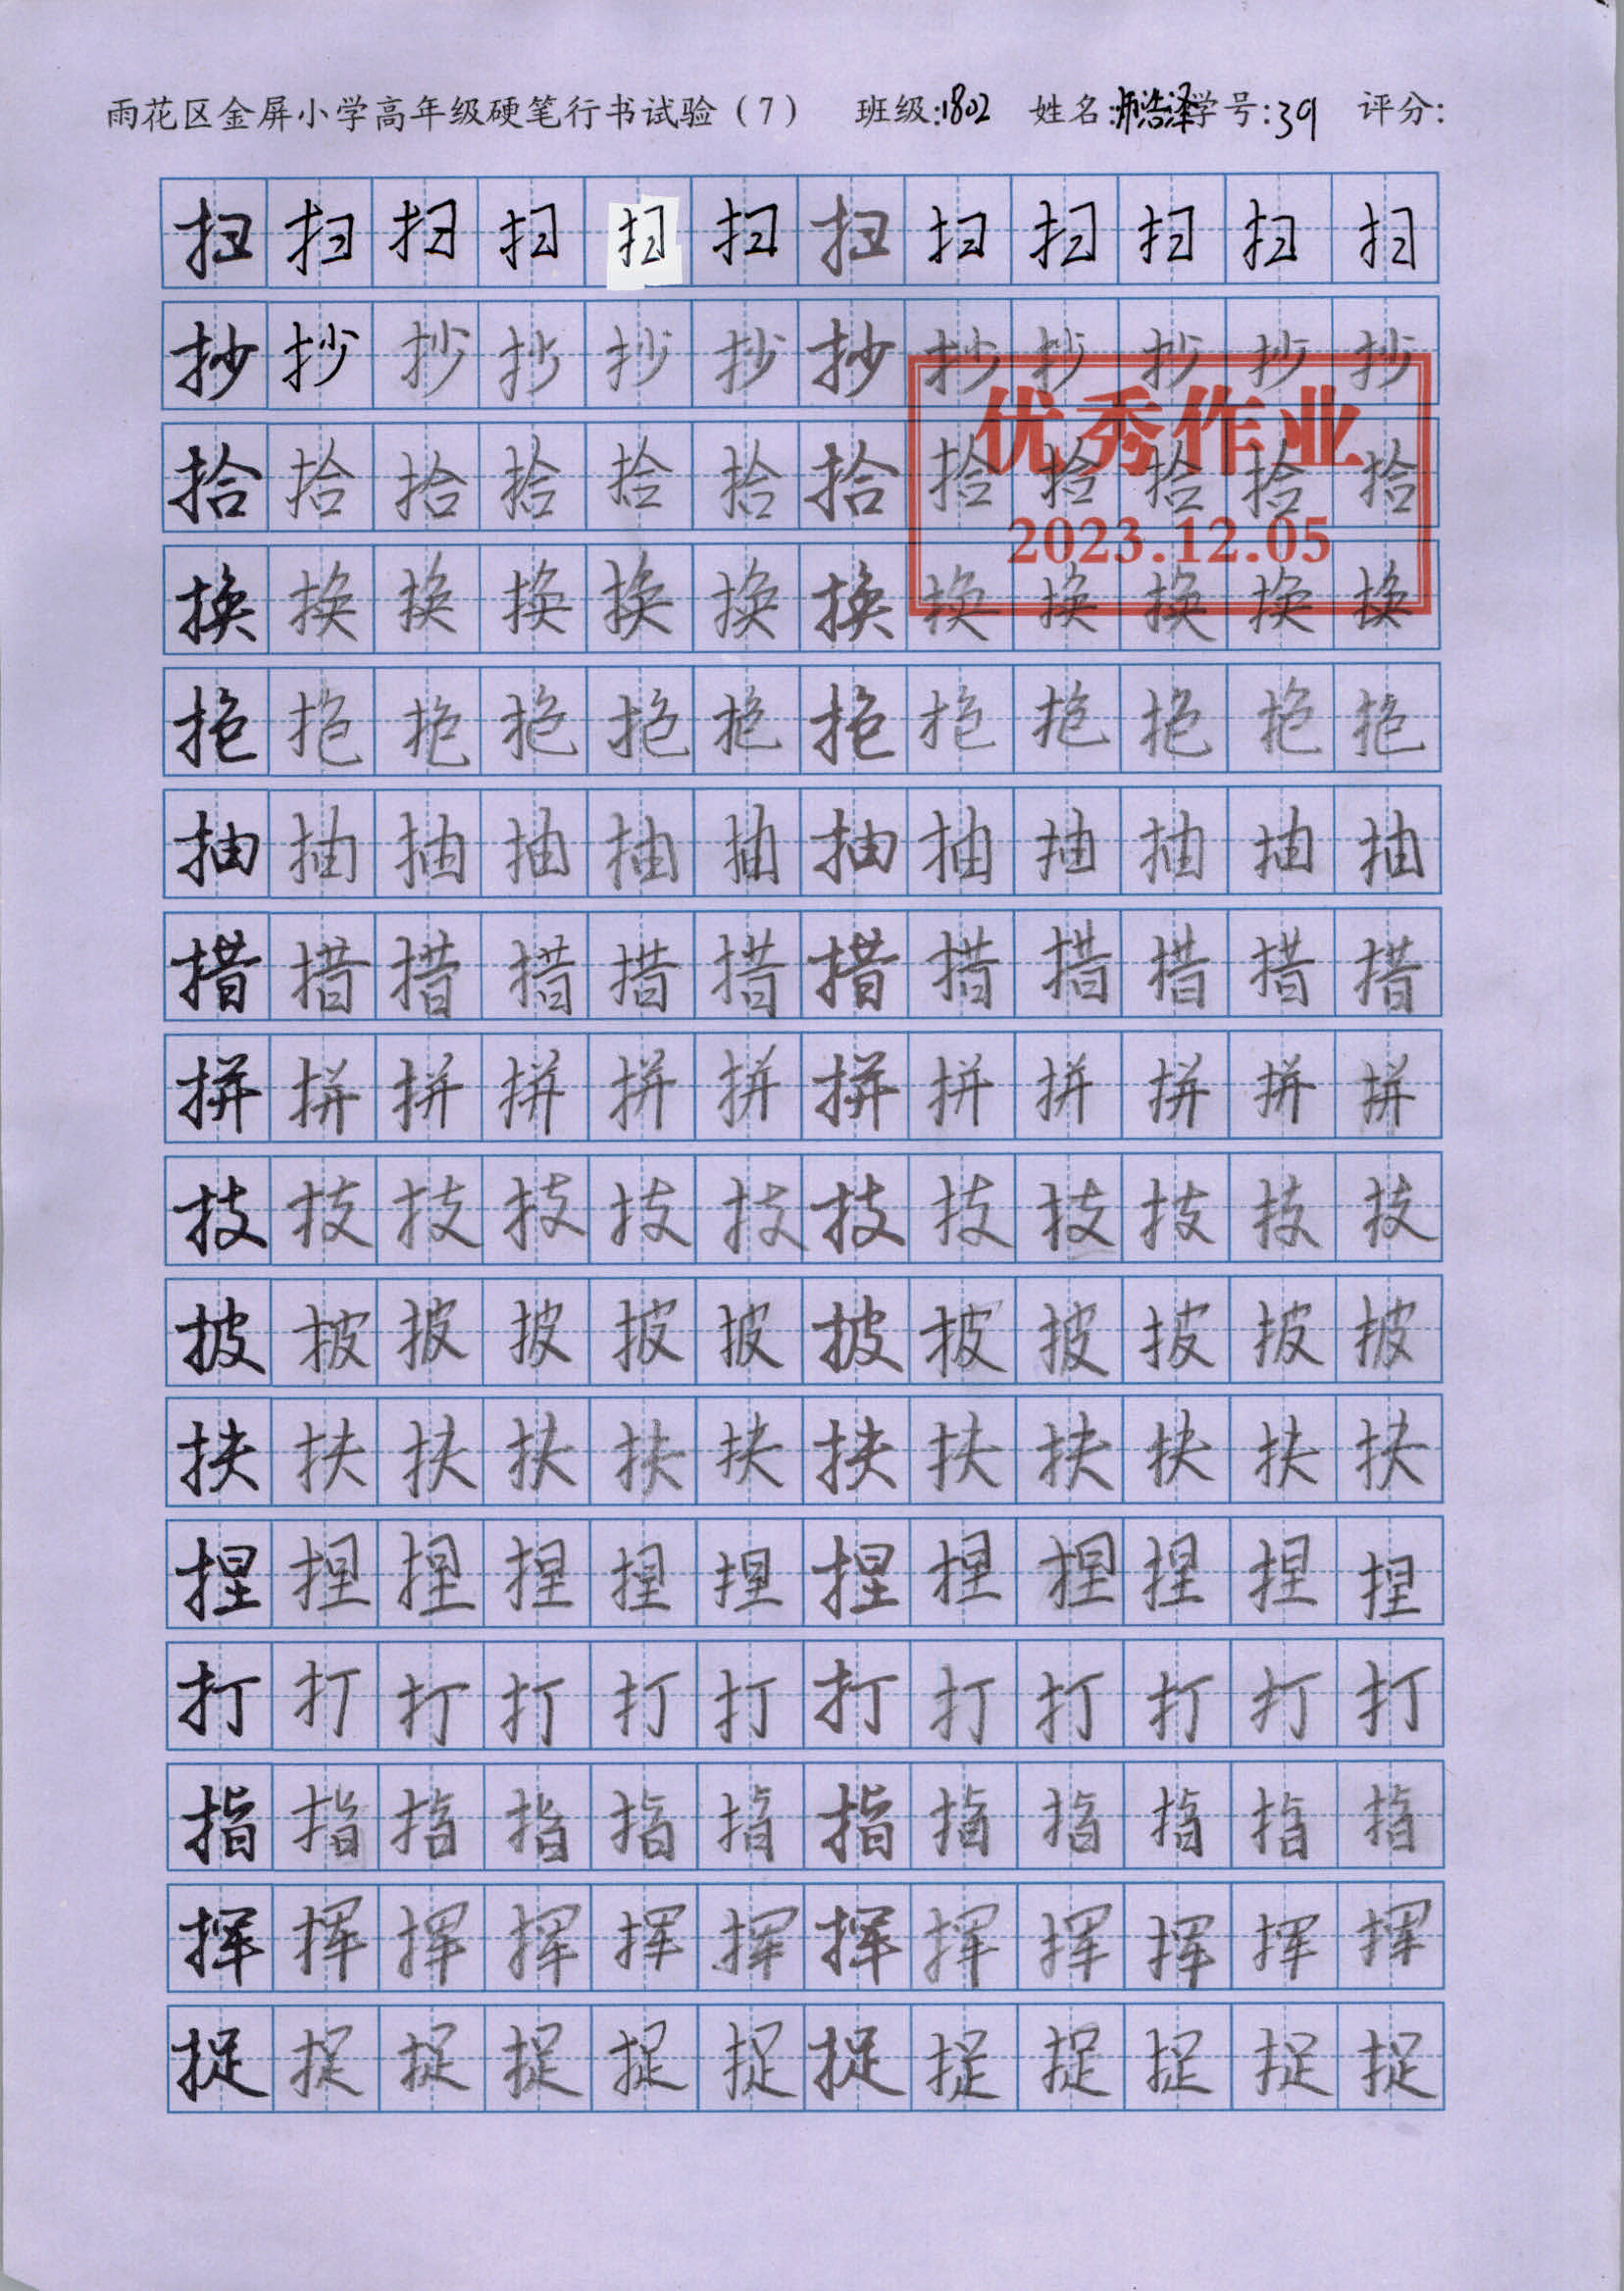 雨花区金屏小学高年级硬笔行书试验（7） 班级:1802 姓名:浩泽 学号:39 评分:
扫扫扫扫扫扫扫扫扫扫扫扫
抄抄抄抄抄抄抄抄抄抄抄抄
优秀作业
拾拾拾拾拾拾拾拾拾拾拾拾
2023.12.05
换换换换换换换换换换换换
抱抱抱抱抱抱抱抱抱抱抱抱
抽抽抽抽抽抽抽抽抽抽抽抽
措措措措措措措措措措措措
拼拼拼拼拼拼拼拼拼拼拼拼
技技技技技技技技技技技技
披披披披披披披披披披披披
扶扶扶扶扶扶扶扶扶扶扶扶
捏捏捏捏捏捏捏捏捏捏捏捏
打打打打打打打打打打打打
指指指指指指指指指指指指
挥挥挥挥挥挥挥挥挥挥挥挥
捉捉捉捉捉捉捉捉捉捉捉捉